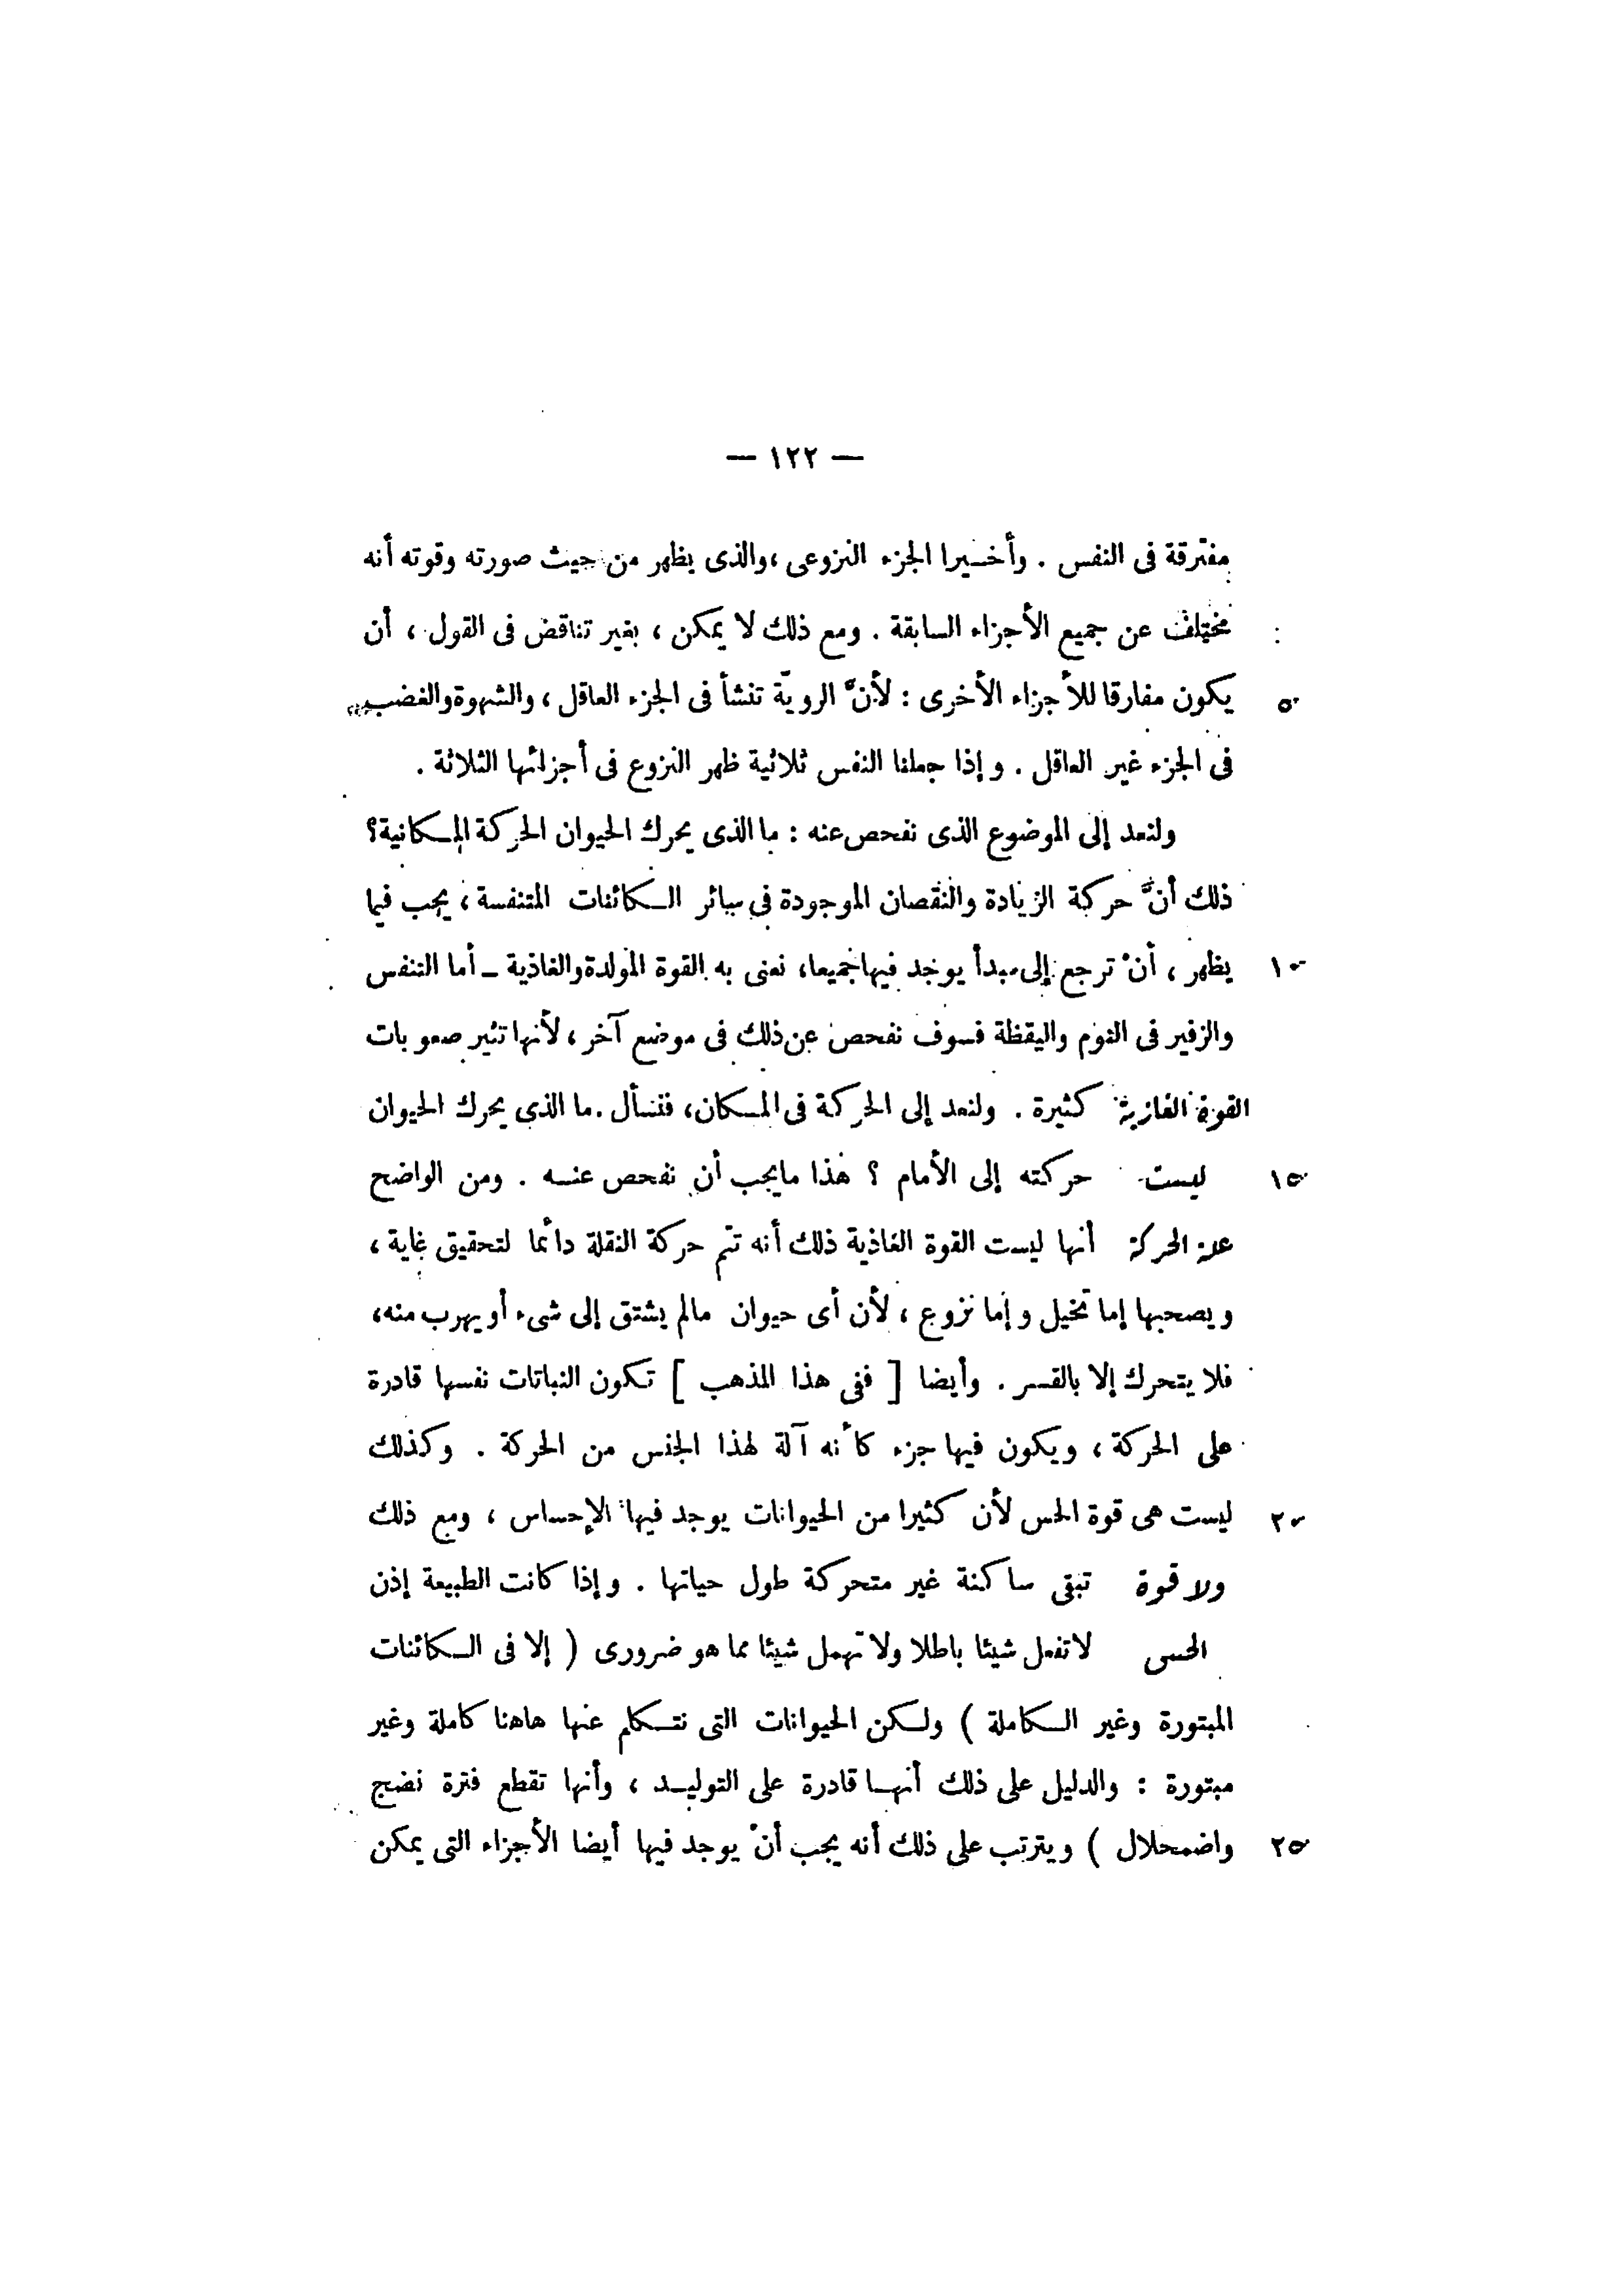 — ١٢٢ —
مفترقة فى النفس . وأخـيرا الجزء النزوعى ، والذى يظهر من حيث صورته وقوته أنه
مختلف عن جميع الأجزاء السابقة . ومع ذلك لا يمكن ، بغير تناقض فى القول ، أن
٥ يكون مفارقا للأجزاء الأخرى : لأنَّ الرويّة تنشأ فى الجزء العاقل ، والشهوة والغضب
فى الجزء غير العاقل . وإذا جعلنا النفس ثلاثية ظهر النزوع فى أجزائها الثلاثة .
ولنعد إلى الموضوع الذى نفحص عنه : ما الذى يحرك الحيوان الحركة المـكانية؟
ذلك أنَّ حركة الزيادة والنقصان الموجودة فى سائر الـكائنات المتنفسة ، يجب فيما
١٠ يظهر ، أنْ ترجع إلى مبدأ يوجد فيها جميعا، نعنى به القوة المولدة والغاذية ــ أما التنفس
والزفير فى النوم واليقظة فسوف نفحص عن ذلك فى موضع آخر ، لأنها تثير صعوبات
القوة الغازية كثيرة . ولنعد إلى الحركة فى المـكان، فنسأل . ما الذى يحرك الحيوان
١٥ ليست حركته إلى الأمام ؟ هذا ما يجب أن نفحص عنـه . ومن الواضح
علة الحركة أنها ليست القوة الغاذية ذلك أنه تتم حركة النقلة دائما لتحقيق غاية ،
ويصحبها إما تخيل وإما نزوع ، لأن أى حيوان مالم يشتق إلى شىء أو يهرب منه،
فلا يتحرك إلا بالقسر . وأيضا [ ففى هذا المذهب ] تـكون النباتات نفسها قادرة
على الحركة ، ويكون فيها جزء كأنه آلة لهذا الجنس من الحركة . وكذلك
٢٠ ليست هى قوة الحس لأن كثيرا من الحيوانات يوجد فيها الإحساس ، ومع ذلك
ولا قوة تبقى ساكنة غير متحركة طول حياتها . وإذا كانت الطبيعة إذن
الحسى لا تفعل شيئا باطلا ولا تهمل شيئا مما هو ضرورى ( إلا فى الـكائنات
المبتورة وغير الـكاملة ) ولـكن الحيوانات التى نتـكلم عنها هاهنا كاملة وغير
مبتورة : والدليل على ذلك أنهـا قادرة على التوليـد ، وأنها تقطع فترة نضج
٢٥ واضمحلال ) ويترتب على ذلك أنه يجب أنْ يوجد فيها أيضا الأجزاء التى يمكن